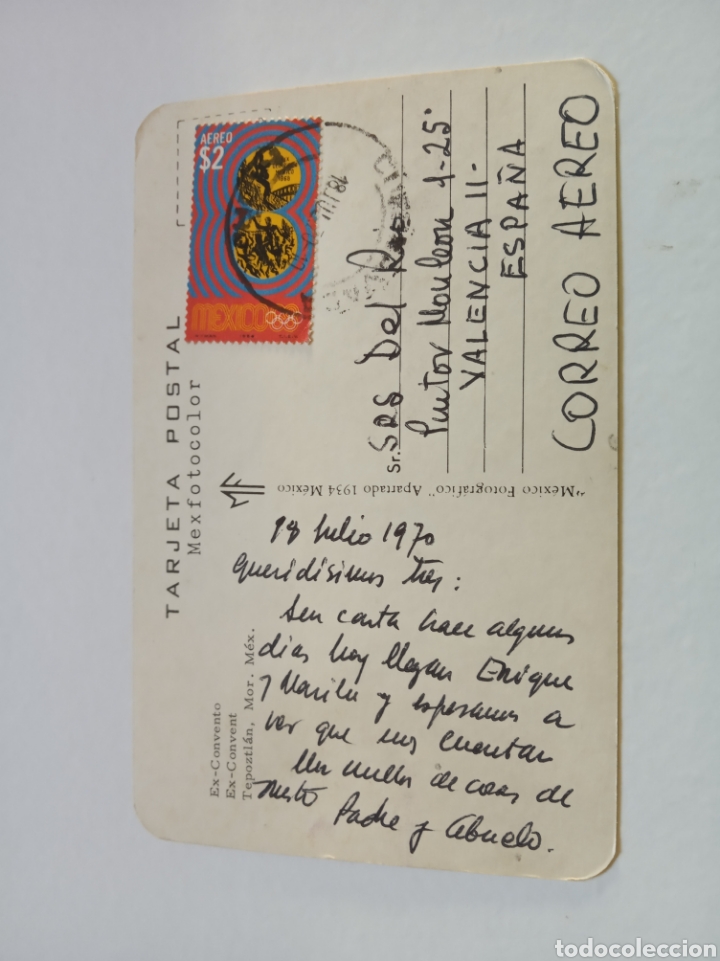 TARJETA POSTAL
Mexfotocolor
AEREO
$2
MEXICO
Ex-Convento
Ex-Convent
Tepoztlán, Mor. Méx.
"México Fotográfico" Apartado 1934 México
18 Julio 1970
Queridísimos tres:
Sen carta hace algunos
dias hoy llegan Enrique
y Marilu y esperamos a
ver que nos cuentan
Un millon de cosas de
Padre y Abuelo.
Sr. SRS Del
Pintor Monleon 1-25
VALENCIA 11.
ESPAÑA
CORREO AEREO
todocoleccion